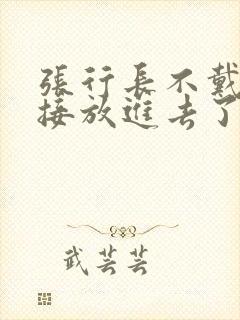 張行長不戴
接放進去了
武芸芸